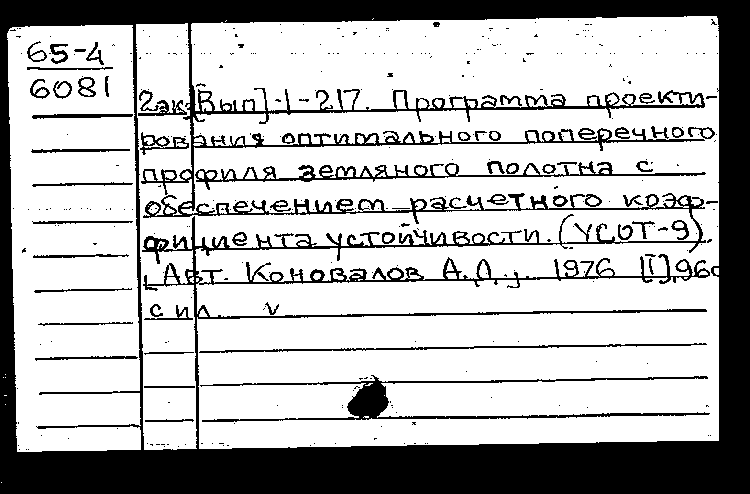 65-4
6081
2 экз [Вып].1-217. Программа проекти-
рования оптимального поперечного
профиля земляного полотна с
обеспечением расчетного коэф-
фициента устойчивости. (УСОТ-9).
[Авт. Коновалов А.Л.]. 1976 [I], 96с
с ил. v